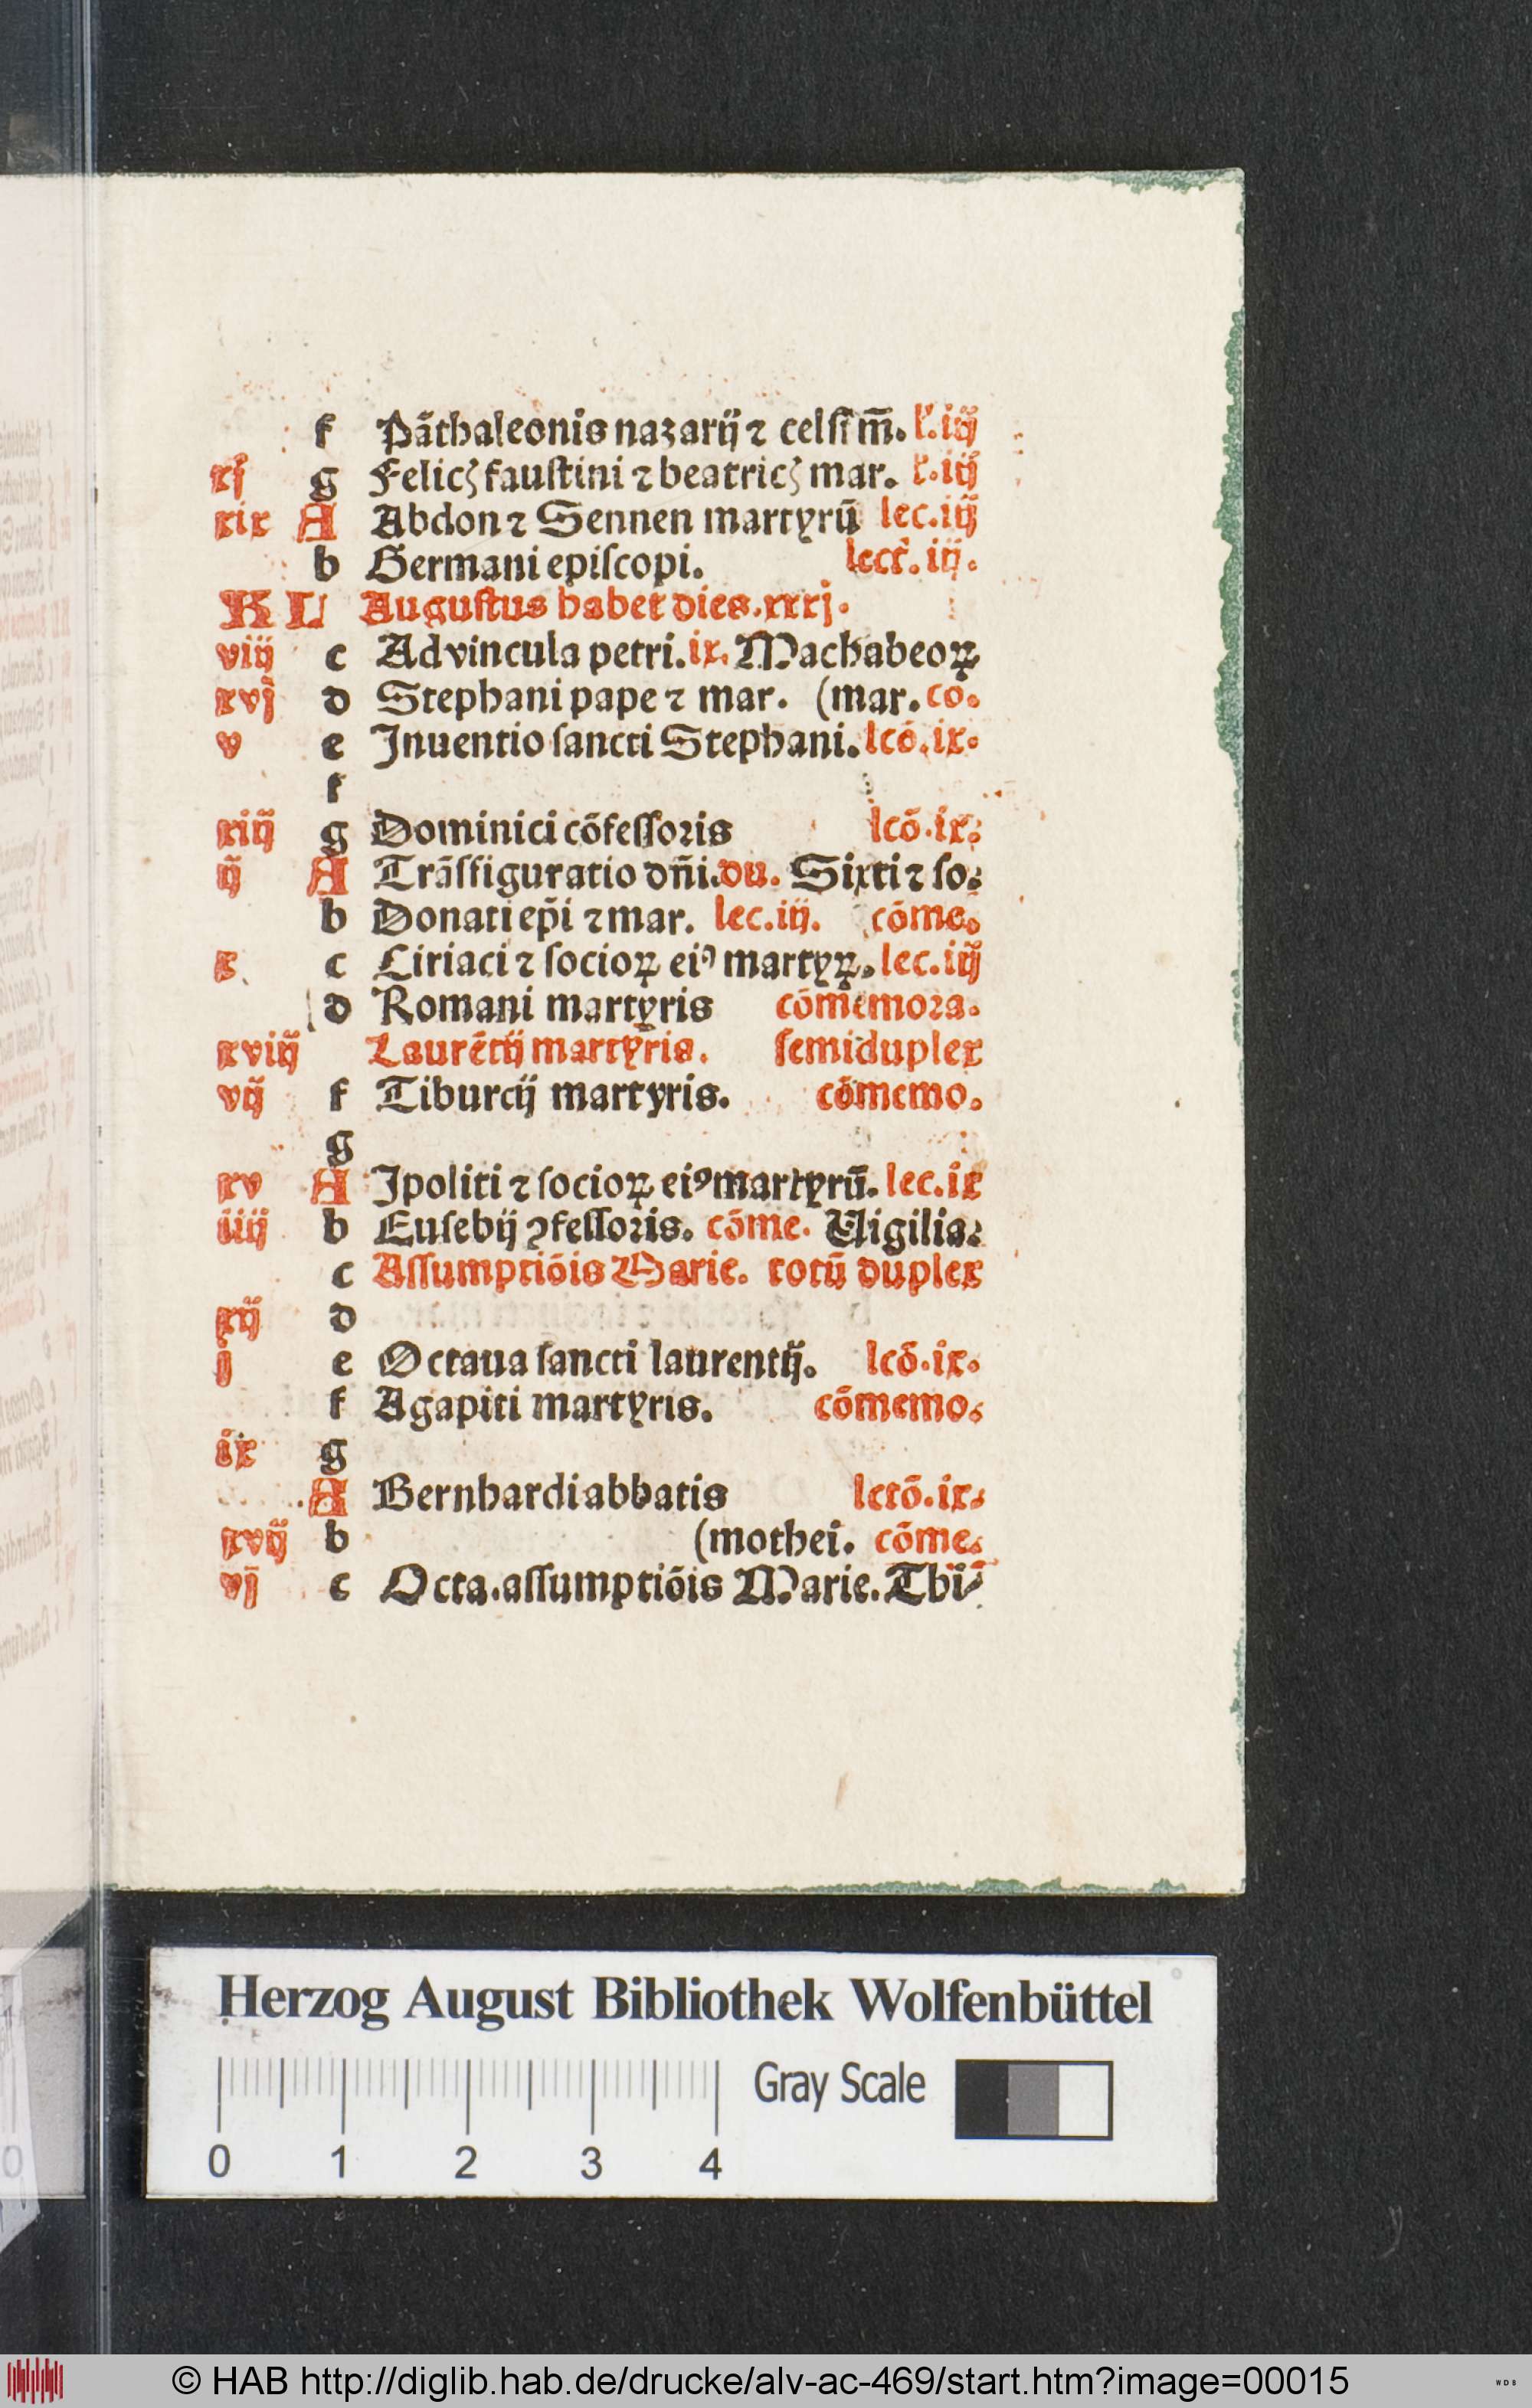 f Pãthaleonis nazarij ⁊ celsi m̃. l'.iij
xj g Felicꝫ faustini ⁊ beatricꝫ mar. l'.iij
xix A Abdon ⁊ Sennen martyrũ lec.iij
b Germani episcopi. lect'.iij.
KL Augustus habet dies.xxxj.
viij c Ad vincula petri.ix. Machabeoꝝ
xvj d Stephani pape ⁊ mar. (mar. cõ.
v e Inuentio sancti Stephani. lcõ.ix.
f
xiij g Dominici cõfessoris lcõ.ix.
ij A Trãsfiguratio dñi.du. Sixti ⁊ so⸗
b Donati ep̃i ⁊ mar. lec.iij. cõme.
x c Ciriaci ⁊ socioꝝ eiꝰ martyꝝ. lec.iij
d Romani martyris cõmemora.
xviij Laurẽtij martyris. semiduplex
vij f Tiburcij martyris. cõmemo.
g
xv A Ipoliti ⁊ socioꝝ eiꝰ martyrũ. lec.ix
iiij b Eusebij ꝯfessoris. cõme. Uigilia.
c Assumptiõis Marie. totũ duplex
xij d
j e Octaua sancti laurentij. lcõ.ix.
f Agapiti martyris. cõmemo.
ix g
A Bernhardi abbatis lctõ.ix.
xvij b (mothei. cõme.
vj c Octa.assumptiõis Marie. Thi⸗
Herzog August Bibliothek Wolfenbüttel
Gray Scale
0 1 2 3 4
© HAB http://diglib.hab.de/drucke/alv-ac-469/start.htm?image=00015